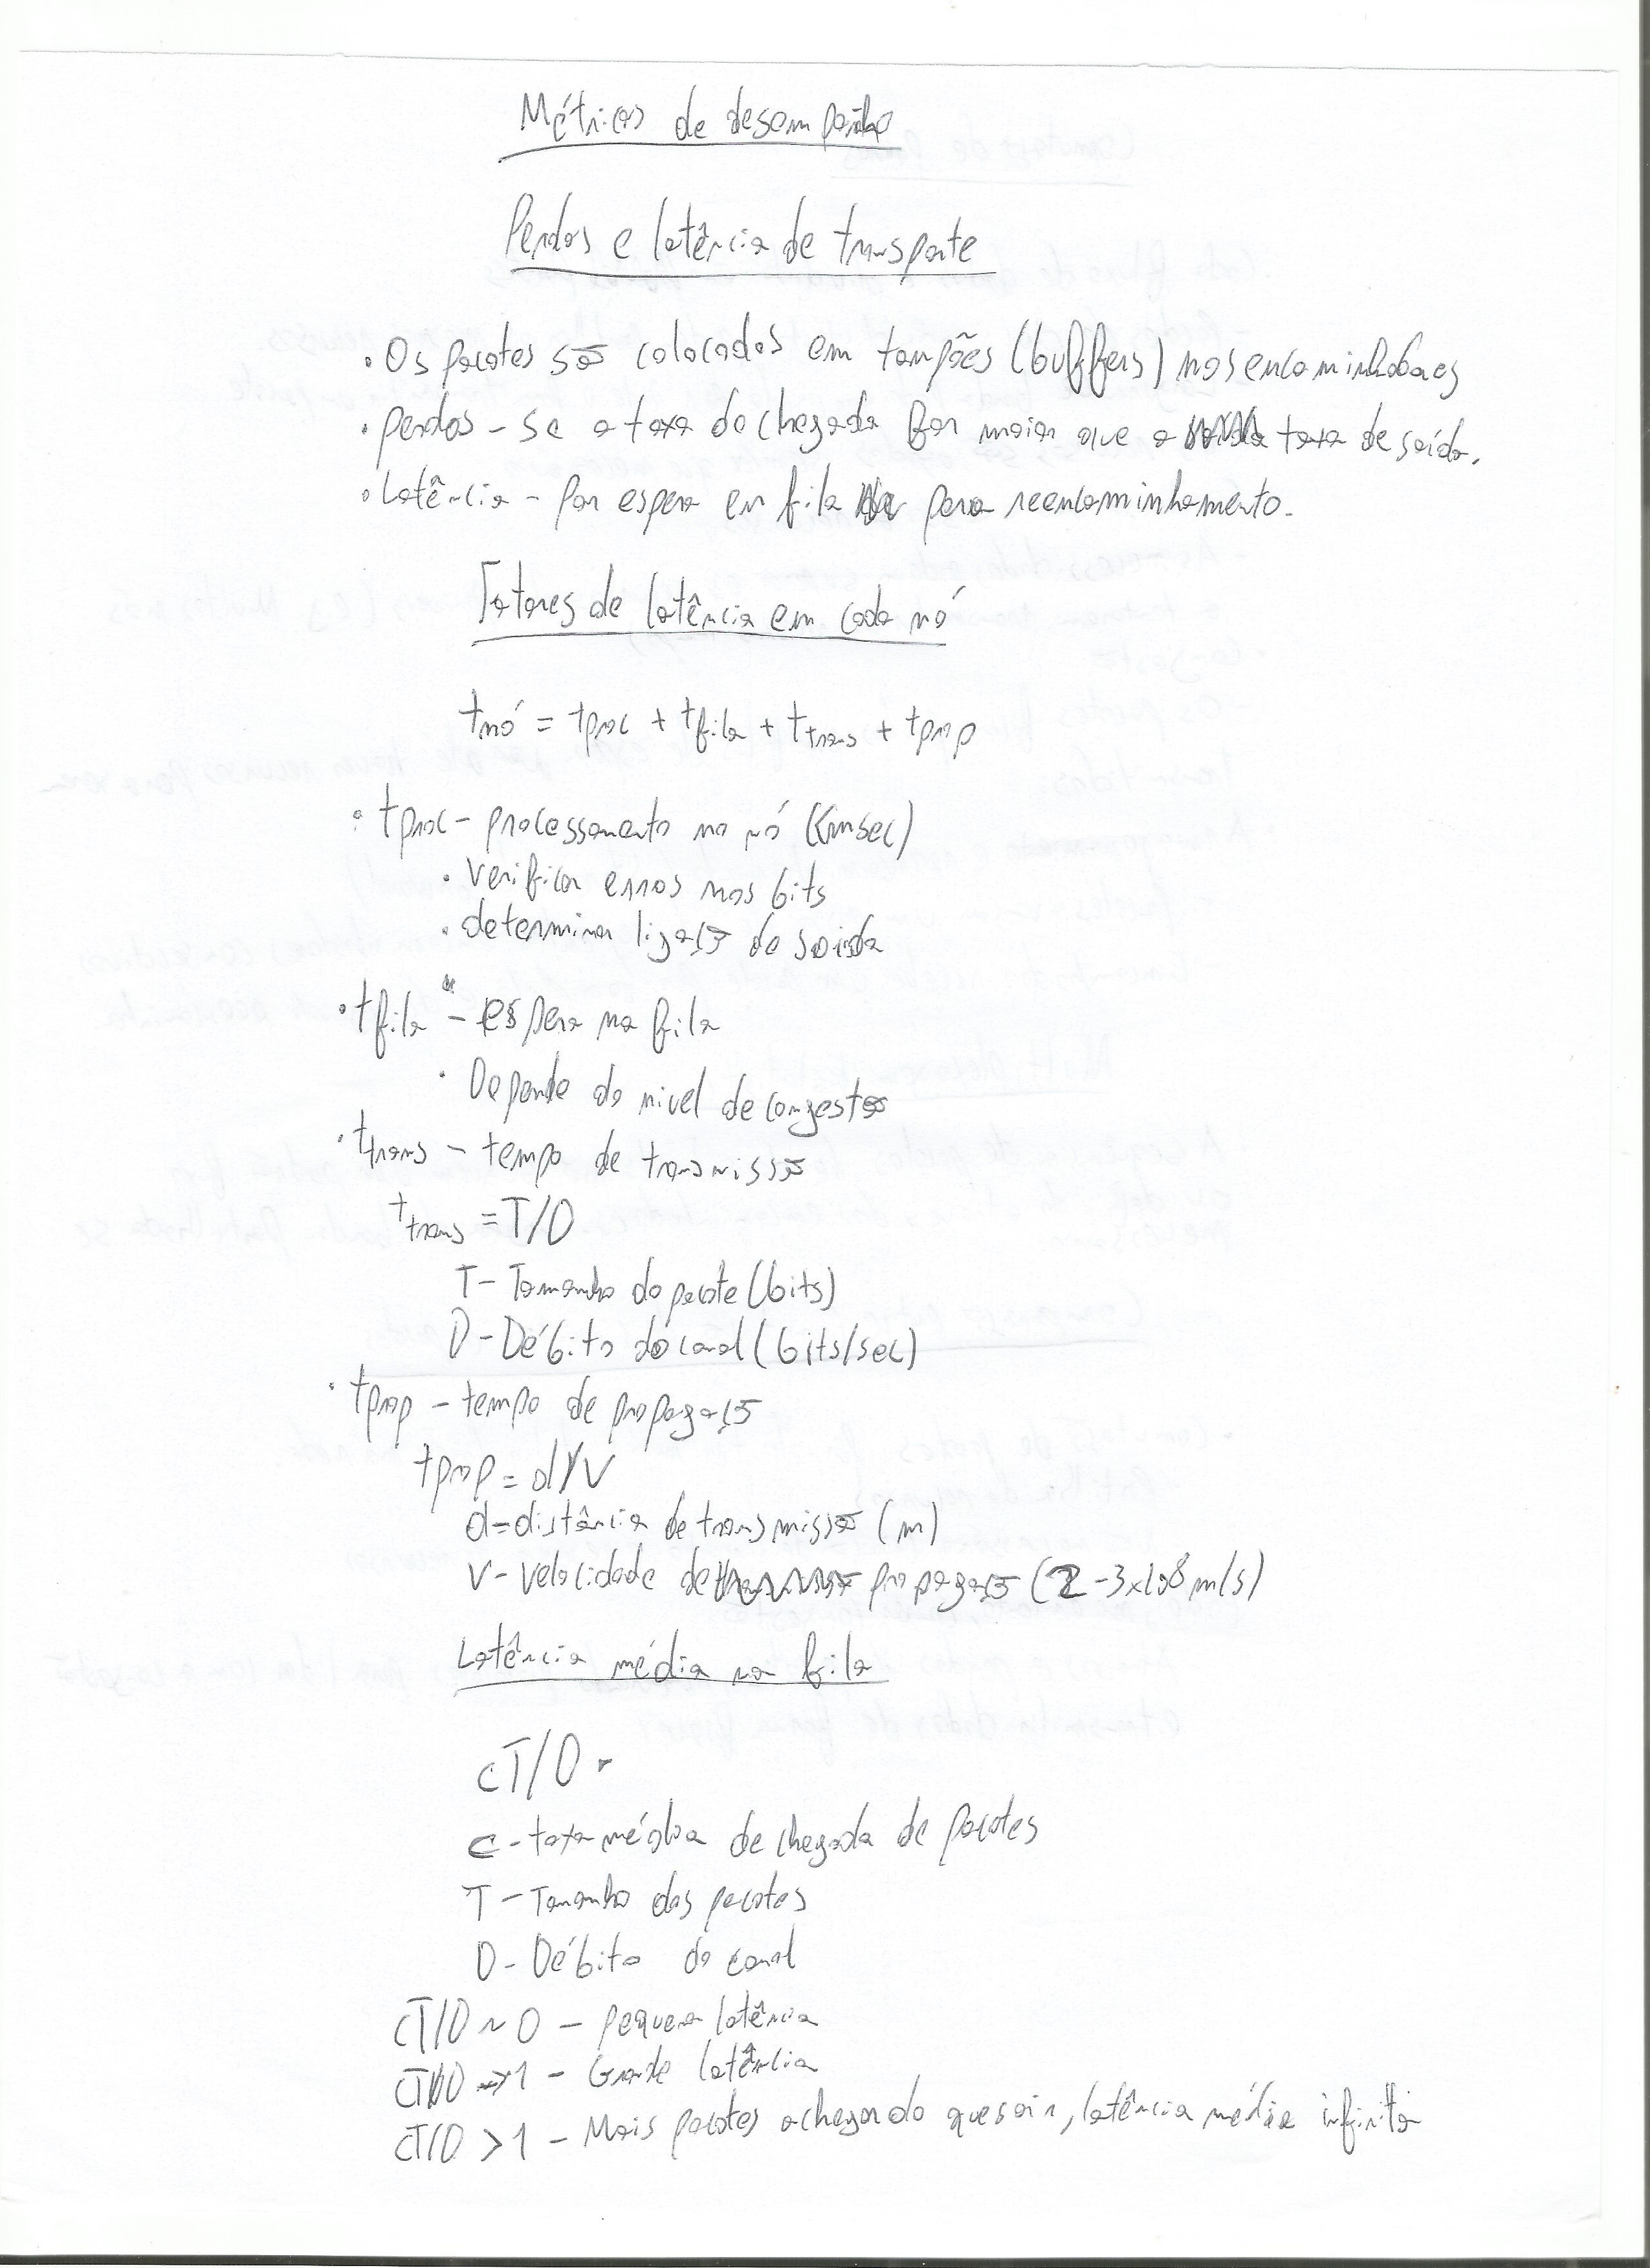 Métricas de desempenho
Perdas e latência de transporte
• Os pacotes são colocados em tampões (buffers) nos encaminhadores
• perdas - se a taxa de chegada for maior que a taxa de saída.
• Latência - por espera em fila para reencaminhamento.
Fatores de latência em cada nó
tnó = tproc + tfila + ttrans + tprop
• tproc - processamento no nó (<msec)
• verificar erros nos bits
• determinar ligação de saída
• tfila - espera na fila
• Depende do nivel de congestão
• ttrans - tempo de transmissão
ttrans = T/D
T - Tamanho do pacote (bits)
D - Débito do canal (bits/sec)
• tprop - tempo de propagação
tprop = d/V
d = distância de transmissão (m)
V - velocidade de propagação (2-3x10⁸ m/s)
Latência média na fila
cT/D
c - taxa média de chegada de pacotes
T - Tamanho dos pacotes
D - Débito do canal
cT/D ~ 0 - pequena latência
cT/D → 1 - Grande latência
cT/D > 1 - Mais pacotes a chegar do que sair, latência média infinita